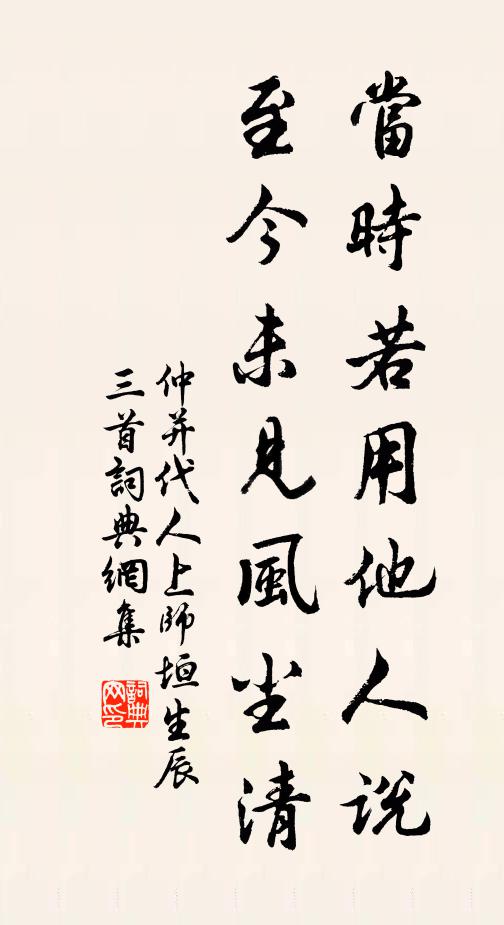 當時若用他人説
至今未見風尘清
仲并代人上師垣生辰
三首詞典網集
詞典
网印